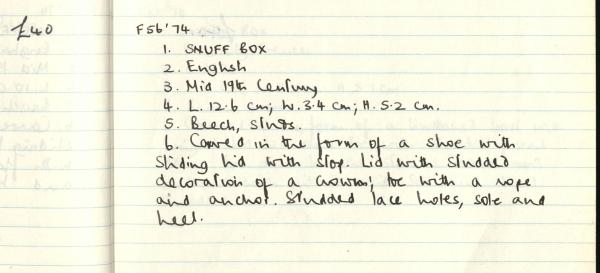 £40
F56'74
1. SNUFF BOX
2. English
3. Mid 19th Century
4. L. 12.6 cm; W. 3.4 cm; H. 5.2 cm.
5. Beech, studs.
6. Carved in the form of a shoe with
sliding lid with stop. Lid with studded
decoration of a crown; toe with a rope
and anchor. Studded lace holes, sole and
heel.